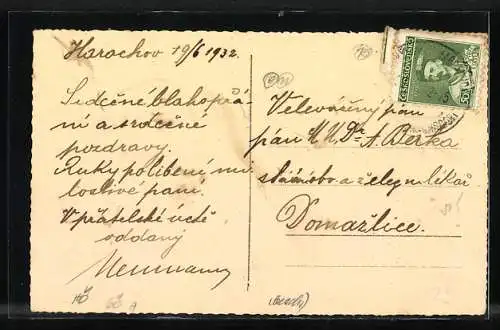 Harachov 19/6 1932.
Srdečné blahopřá-
ní a srdečné
pozdravy.
Ruky políbení mi-
lostivé paní.
V přátelské úctě
oddaný
Neumann
Velevážený pan
pan MUDr A. Berka
a želez. lékař
Domažlice.
ČESKOSLOVENSKO
50